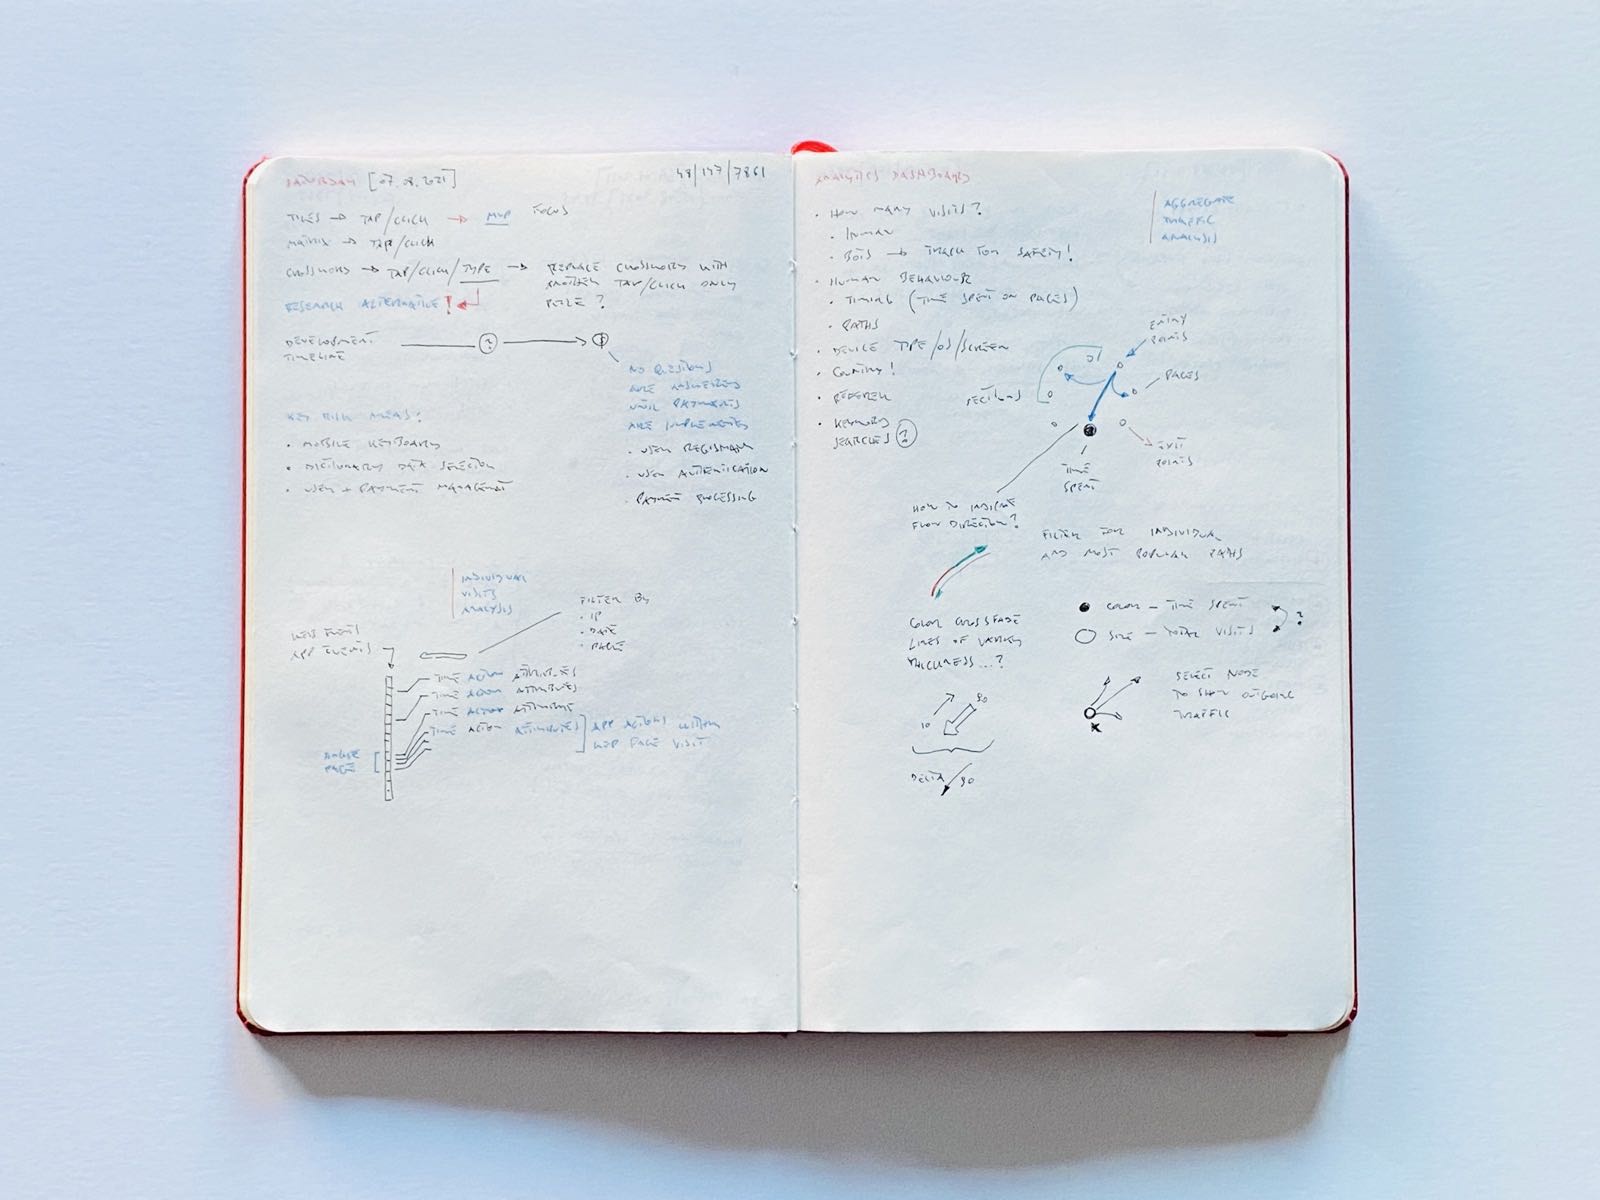 SATURDAY [07.08.2021]
48/147/7861
TILES → TAP/CLICK → MVP FOCUS
MATRIX → TAP/CLICK
CROSSWORD → TAP/CLICK/TYPE → REPLACE CROSSWORD WITH
ANOTHER TAP/CLICK ONLY
RESEARCH ALTERNATIVE!
PUZZLE?
DEVELOPMENT
TIMELINE
NO QUESTIONS
ARE ANSWERED
UNTIL PAYMENTS
ARE IMPLEMENTED
• USER
• USER AUTHENTICATION
• PAYMENT PROCESSING
KEY RISK AREAS:
• MOBILE KEYBOARD
• DICTIONARY DATA SELECTION
• USER + PAYMENT MANAGEMENT
INDIVIDUAL
VISITS
ANALYSIS
FILTER BY
• IP
• DATE
• PAGE
WEB EVENTS
APP EVENTS
TIME ACTION ATTRIBUTES
TIME ACTION ATTRIBUTES
TIME ACTION ATTRIBUTES
TIME ACTION ATTRIBUTES
APP ACTIONS WITHIN
WEB PAGE VISIT
PAGE
ANALYTICS DASHBOARD
AGGREGATE
TRAFFIC
ANALYSIS
• HOW MANY VISITS?
• HUMAN
• BOTS → TRACK FOR SAFETY!
• HUMAN BEHAVIOUR
• TIMING (TIME SPENT ON PAGES)
• PATHS
• DEVICE TYPE/OS/SCREEN
• COUNTRY!
• REFERER
• KEYWORD
SEARCHES ?
ENTRY
POINTS
PAGES
SECTIONS
EXIT
POINTS
TIME
SPENT
HOW TO INDICATE
FLOW DIRECTION?
FILTER FOR INDIVIDUAL
AND MOST POPULAR PATHS
COLOR CROSSFADE
LINES OF VARYING
THICKNESS...?
COLOR – TIME SPENT
SIZE – TOTAL VISITS
?
SELECT NODE
TO SHOW OUTGOING
TRAFFIC
10
90
DELTA